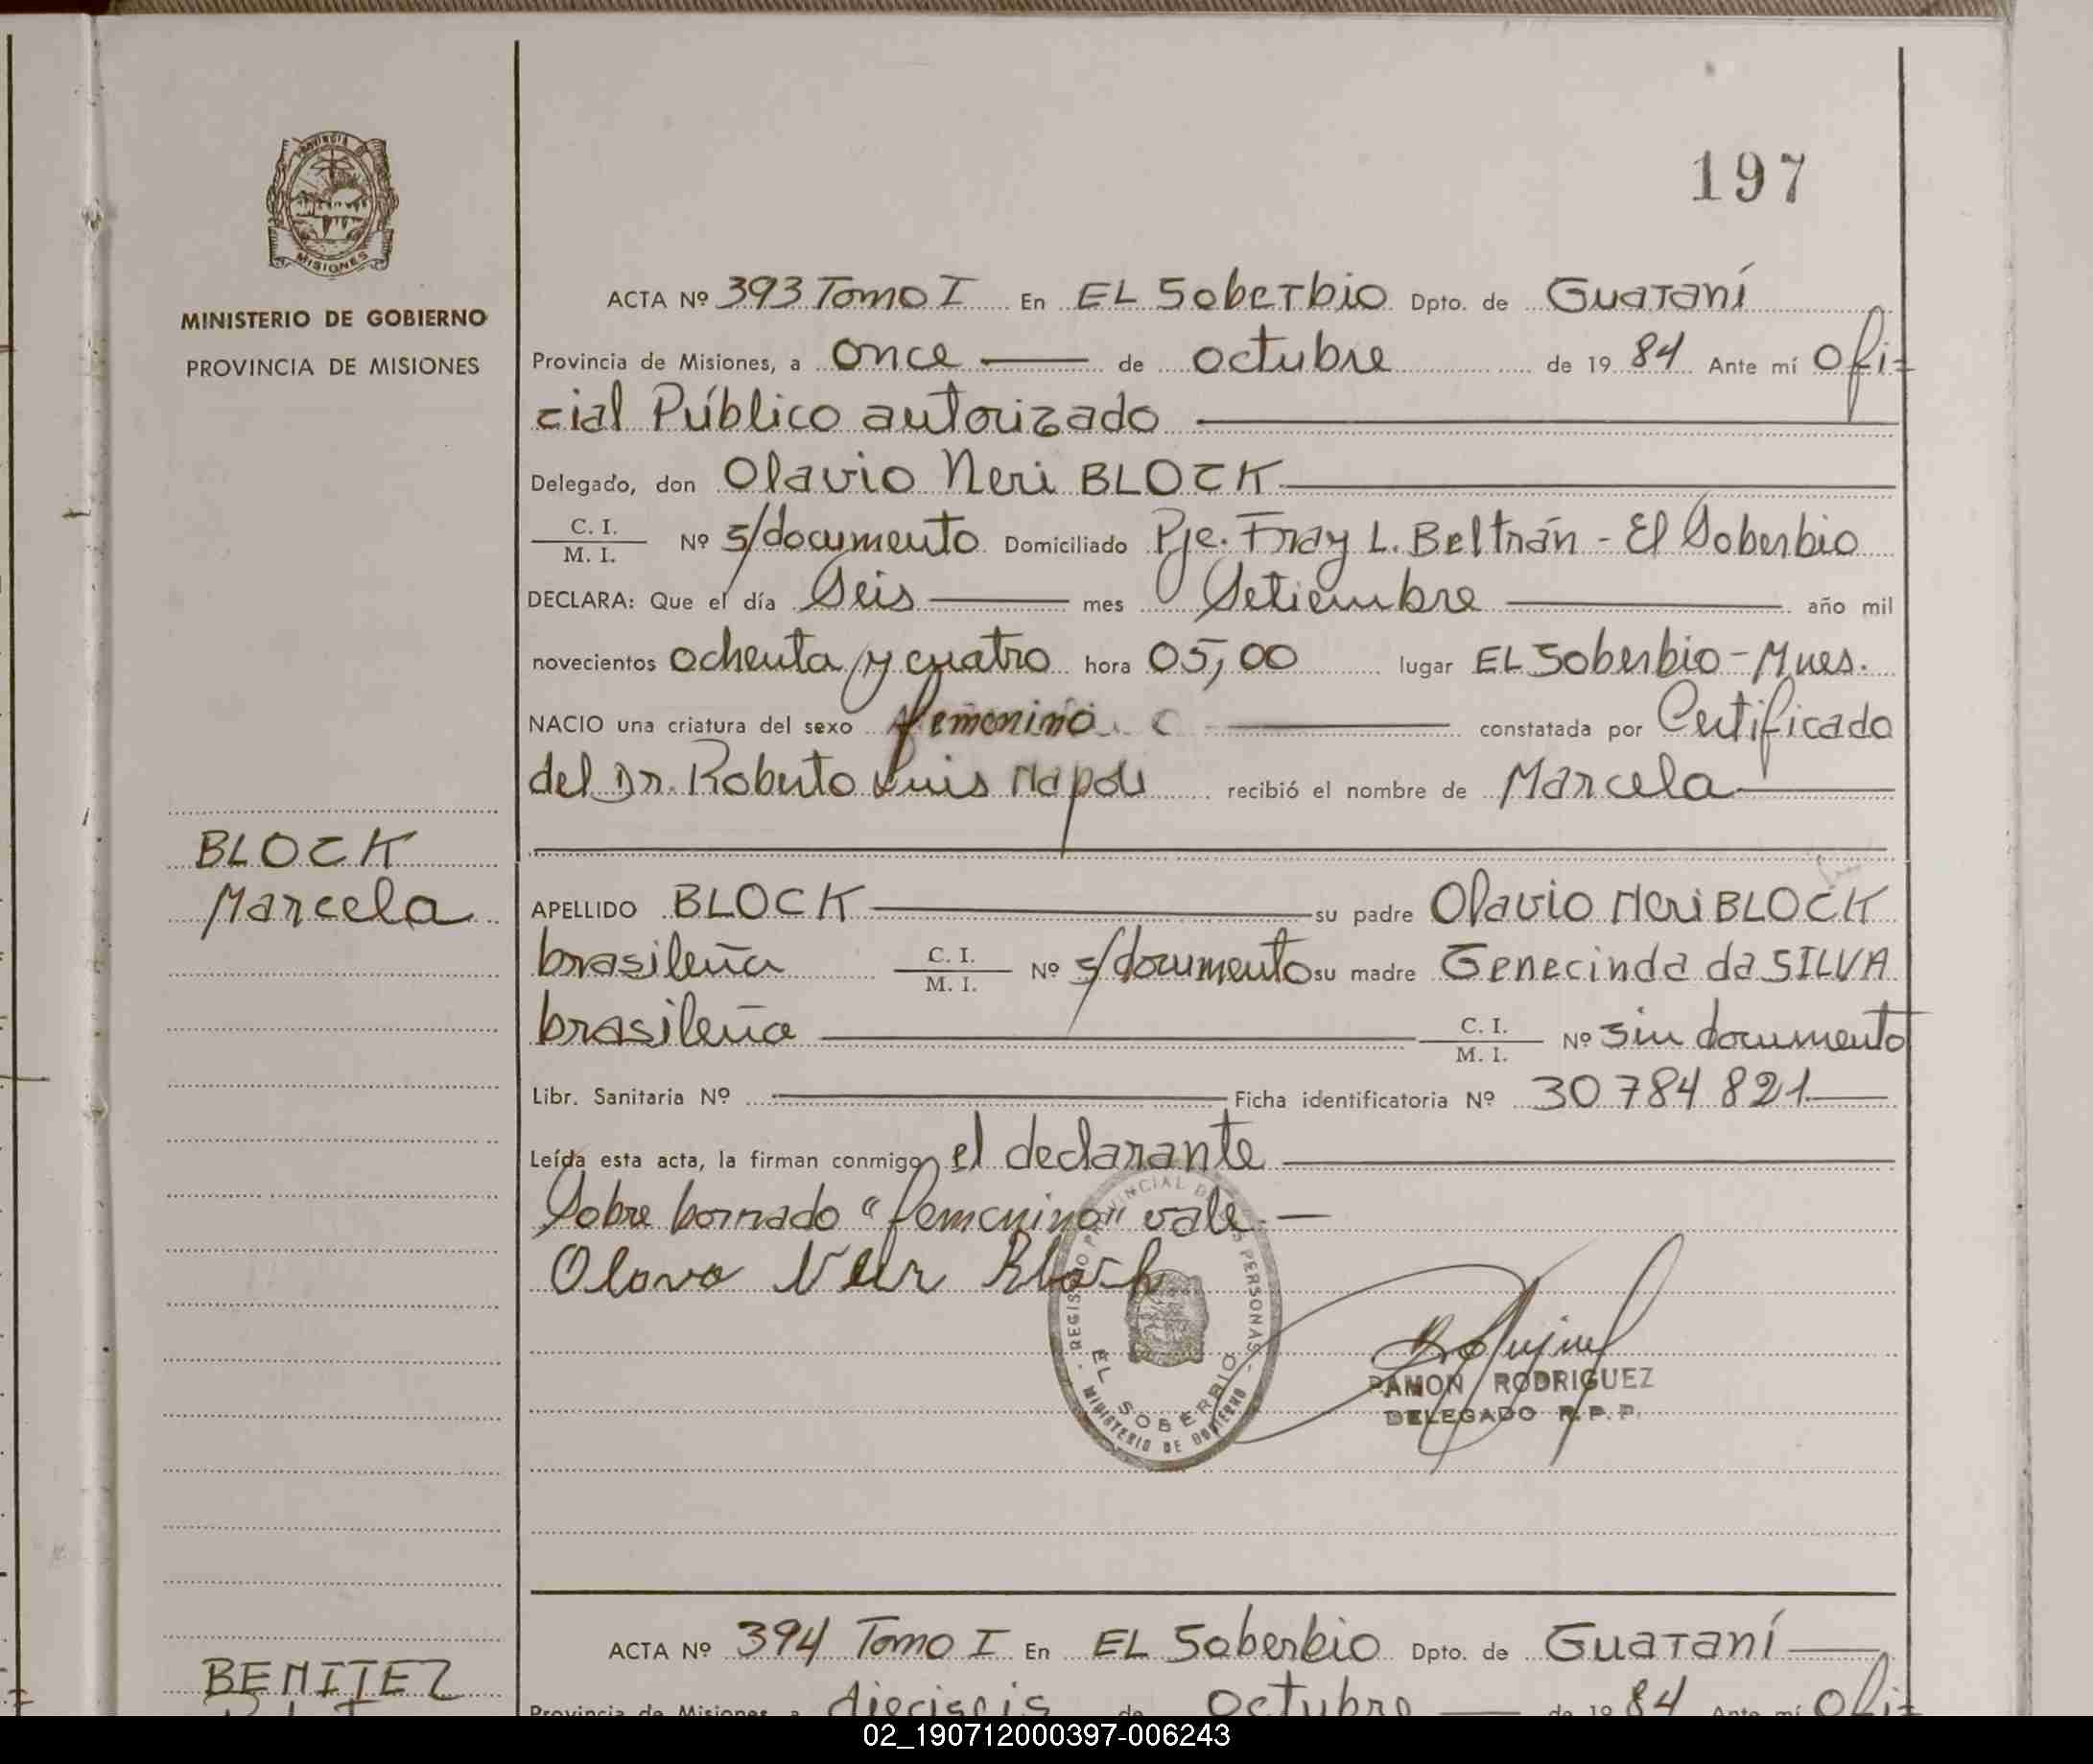 197
PROVINCIA DE
MISIONES
MINISTERIO DE GOBIERNO
PROVINCIA DE MISIONES
ACTA Nº 393 Tomo I En EL Soberbio Dpto. de Guaraní
Provincia de Misiones, a once de octubre de 19 84 Ante mí Ofi-
cial Público autorizado
Delegado, don Olavio Neri BLOCK
C. I. / M. I. Nº s/documento Domiciliado Pje. Fray L. Beltrán - El Soberbio
DECLARA: Que el día Seis mes Setiembre año mil
novecientos ochenta y cuatro hora 05,00 lugar EL Soberbio - Mnes.
NACIO una criatura del sexo femenino constatada por Certificado
del Dr. Roberto Luis Napoli recibió el nombre de Marcela
BLOCK
Marcela
APELLIDO BLOCK su padre Olavio Neri BLOCK
brasileña C. I. / M. I. Nº s/documento su madre Genecinda da SILVA
brasileña C. I. / M. I. Nº sin documento
Libr. Sanitaria Nº Ficha identificatoria Nº 30 784 821
Leída esta acta, la firman conmigo, el declarante
Sobre borrado "femenino" vale.
Olavo Neir Block
REGISTRO PROVINCIAL DE LAS PERSONAS
EL SOBERBIO
MINISTERIO DE GOBIERNO
RAMON RODRIGUEZ
DELEGADO R.P.P.
ACTA Nº 394 Tomo I En EL Soberbio Dpto. de Guaraní
BENITEZ
Provincia de Misiones, a dieciseis de octubre de 19 84 Ante mí Ofi-
02_190712000397-006243